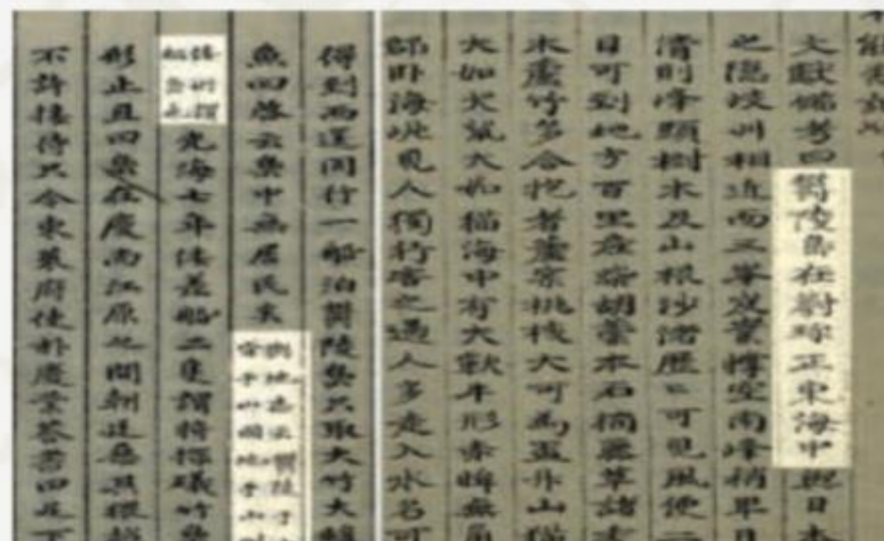 文獻備考曰鬱陵島在蔚珍正東海中與日本
之隱岐州相近而三峯岌嶪撐空南峰稍卑日
清則峰頭樹木及山根沙渚歷々可見風便二
日可到地方百里產柴胡藁本石楠藤草諸
木蘆竹多合抱者蘆實桃核大可爲盃升山猫
大如犬鼠大如猫海中有大獸牛形赤眸無角
師臥海岸見人獨行害之遇人多走入水名可
得到兩運同行一船泊鬱陵島只取大竹大鰒
魚回啓云島中無居民矣
輿地志云鬱陵于
山皆于山國地于山則
倭所謂
松島也
光海七年倭差船二隻謂將探礒竹島
形止且曰島在慶尚江原之間朝廷惡其猥越
不許接待只令東萊府使朴慶業答書曰足下